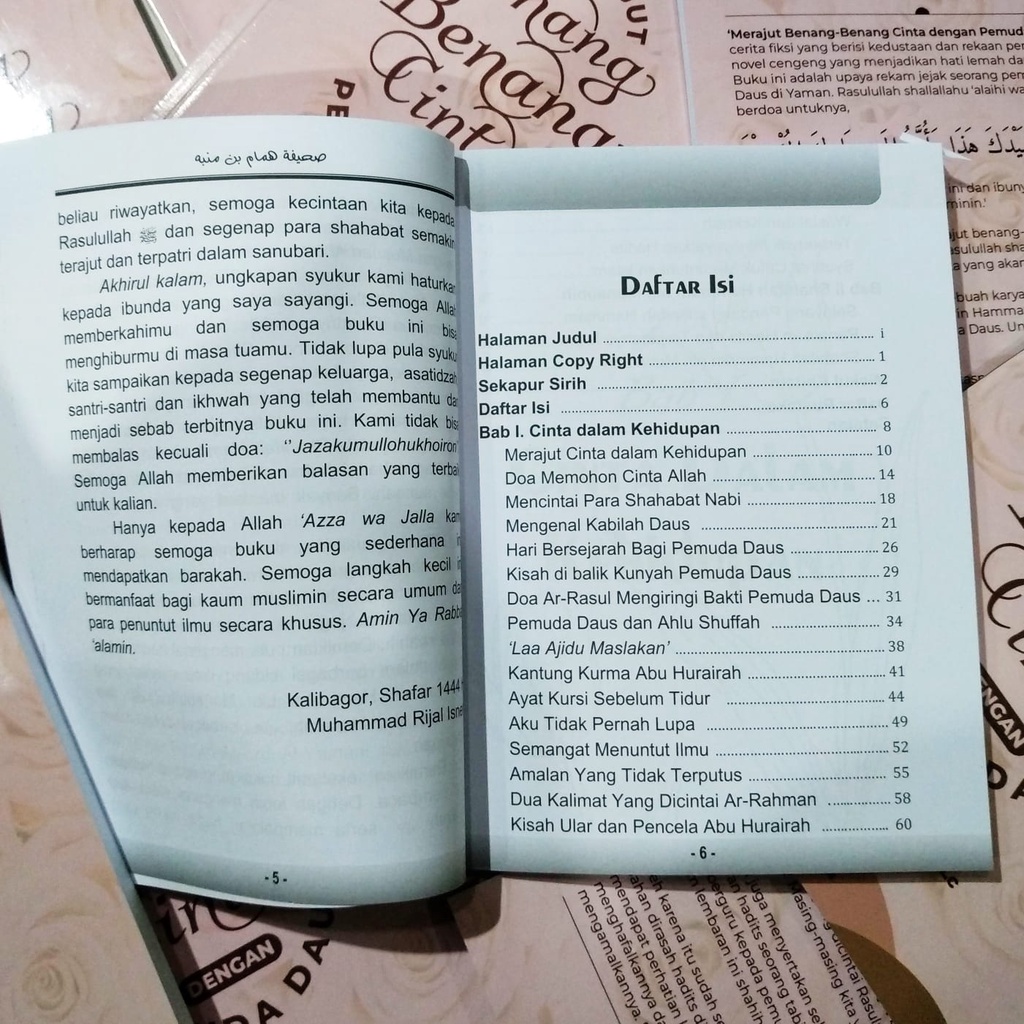 Benang
Cint
'Merajut Benang-Benang Cinta dengan Pemud
cerita fiksi yang berisi kedustaan dan rekaan
novel cengeng yang menjadikan hati lemah
Buku ini adalah upaya rekam jejak seorang
Daus di Yaman. Rasulullah shallallahu 'alaihi
berdoa untuknya,
صحيفة همام بن منبه
beliau riwayatkan, semoga kecintaan kita kepada
Rasulullah ﷺ dan segenap para shahabat semakin
terajut dan terpatri dalam sanubari.
Akhirul kalam, ungkapan syukur kami haturka
kepada ibunda yang saya sayangi. Semoga Alla
memberkahimu dan semoga buku ini bis
menghiburmu di masa tuamu. Tidak lupa pula syuku
kita sampaikan kepada segenap keluarga, asatidzah
santri-santri dan ikhwah yang telah membantu da
menjadi sebab terbitnya buku ini. Kami tidak bis
membalas kecuali doa: ‘’Jazakumullohukhoiron’
Semoga Allah memberikan balasan yang terbai
untuk kalian.
Hanya kepada Allah ‘Azza wa Jalla kam
berharap semoga buku yang sederhana i
mendapatkan barakah. Semoga langkah kecil in
bermanfaat bagi kaum muslimin secara umum da
para penuntut ilmu secara khusus. Amin Ya Rabba
‘alamin.
Kalibagor, Shafar 1444
Muhammad Rijal Isna
- 5 -
Daftar Isi
Halaman Judul ........ i
Halaman Copy Right ........ 1
Sekapur Sirih ........ 2
Daftar Isi ........ 6
Bab I. Cinta dalam Kehidupan ........ 8
Merajut Cinta dalam Kehidupan ........ 10
Doa Memohon Cinta Allah ........ 14
Mencintai Para Shahabat Nabi ........ 18
Mengenal Kabilah Daus ........ 21
Hari Bersejarah Bagi Pemuda Daus ........ 26
Kisah di balik Kunyah Pemuda Daus ........ 29
Doa Ar-Rasul Mengiringi Bakti Pemuda Daus ... 31
Pemuda Daus dan Ahlu Shuffah ........ 34
‘Laa Ajidu Maslakan’ ........ 38
Kantung Kurma Abu Hurairah ........ 41
Ayat Kursi Sebelum Tidur ........ 44
Aku Tidak Pernah Lupa ........ 49
Semangat Menuntut Ilmu ........ 52
Amalan Yang Tidak Terputus ........ 55
Dua Kalimat Yang Dicintai Ar-Rahman ........ 58
Kisah Ular dan Pencela Abu Hurairah ........ 60
- 6 -
DENGAN